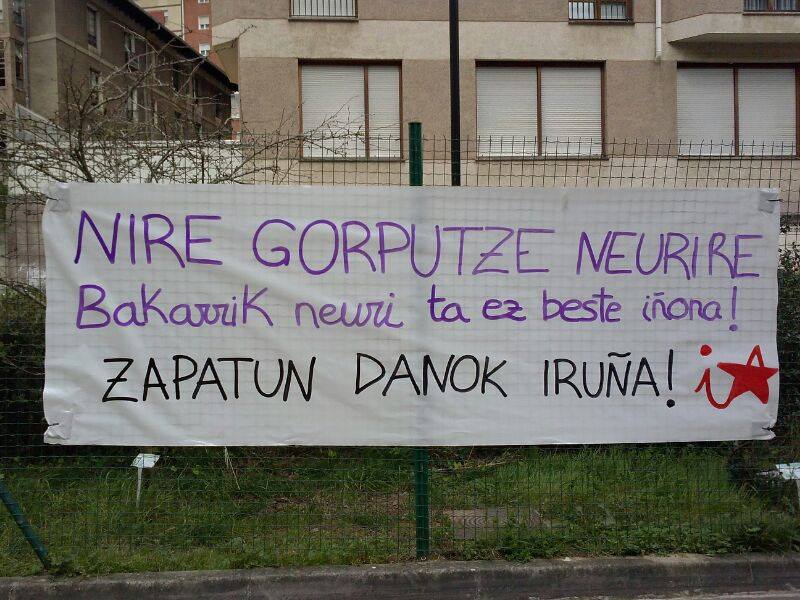 NIRE GORPUTZE NEURIRE
Bakarrik neuri ta ez beste iñona!
ZAPATUN DANOK IRUÑA! i